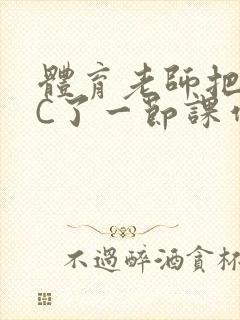 體育老師把
C了一節課作
不過醉酒貪杯